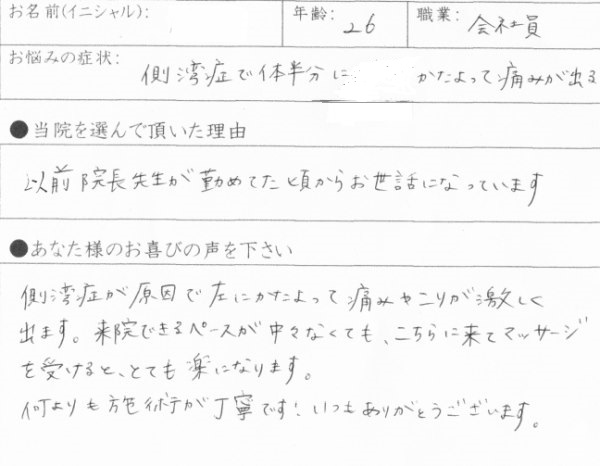 お名前(イニシャル):
年齢: 26
職業: 会社員
お悩みの症状:
側湾症で体半分に かたよって痛みが出る
●当院を選んで頂いた理由
以前院長先生が勤めてた頃からお世話になっています
●あなた様のお喜びの声を下さい
側湾症が原因で左にかたよって痛みやコリが激しく
出ます。来院できるペースが中々なくても、こちらに来てマッサージ
を受けると、とても楽になります。
何よりも施術が丁寧です!いつもありがとうございます。